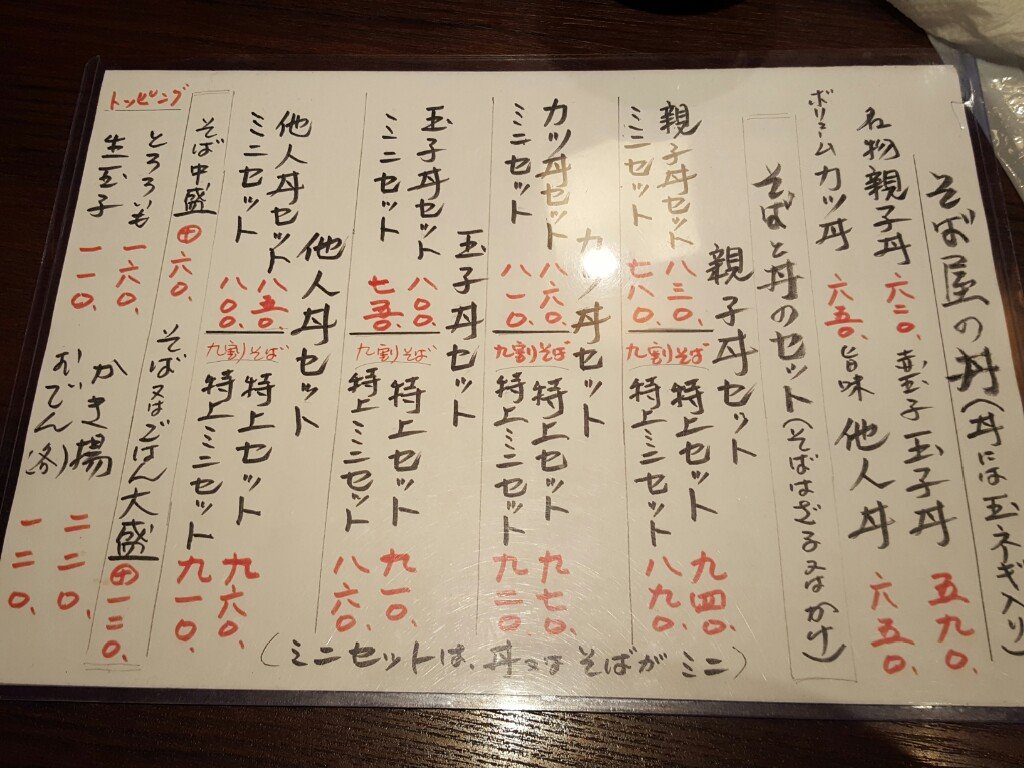 そば屋の丼(丼には玉ネギ入り)
名物親子丼 六二〇.
赤玉子玉子丼 五九〇.
ボリュームカツ丼 六五〇.
旨味他人丼 六五〇.
そばと丼のセット(そばはざる又はかけ)
親子丼セット
親子丼セット 八三〇.
ミニセット 七八〇.
九割そば
特上セット 九四〇.
特上ミニセット 八九〇.
カツ丼セット
カツ丼セット 八六〇.
ミニセット 八一〇.
九割そば
特上セット 九七〇.
特上ミニセット 九二〇.
玉子丼セット
玉子丼セット 八〇〇.
ミニセット 七五〇.
九割そば
特上セット 九一〇.
特上ミニセット 八六〇.
他人丼セット
他人丼セット 八五〇.
ミニセット 八〇〇.
九割そば
特上セット 九六〇.
特上ミニセット 九一〇.
(ミニセットは、丼又はそばがミニ)
そば中盛 ㊉六〇.
そば又はごはん大盛 ㊉一二〇.
トッピング
とろろいも 一六〇.
生玉子 一一〇.
かき揚 二二〇.
おでん(各) 一二〇.